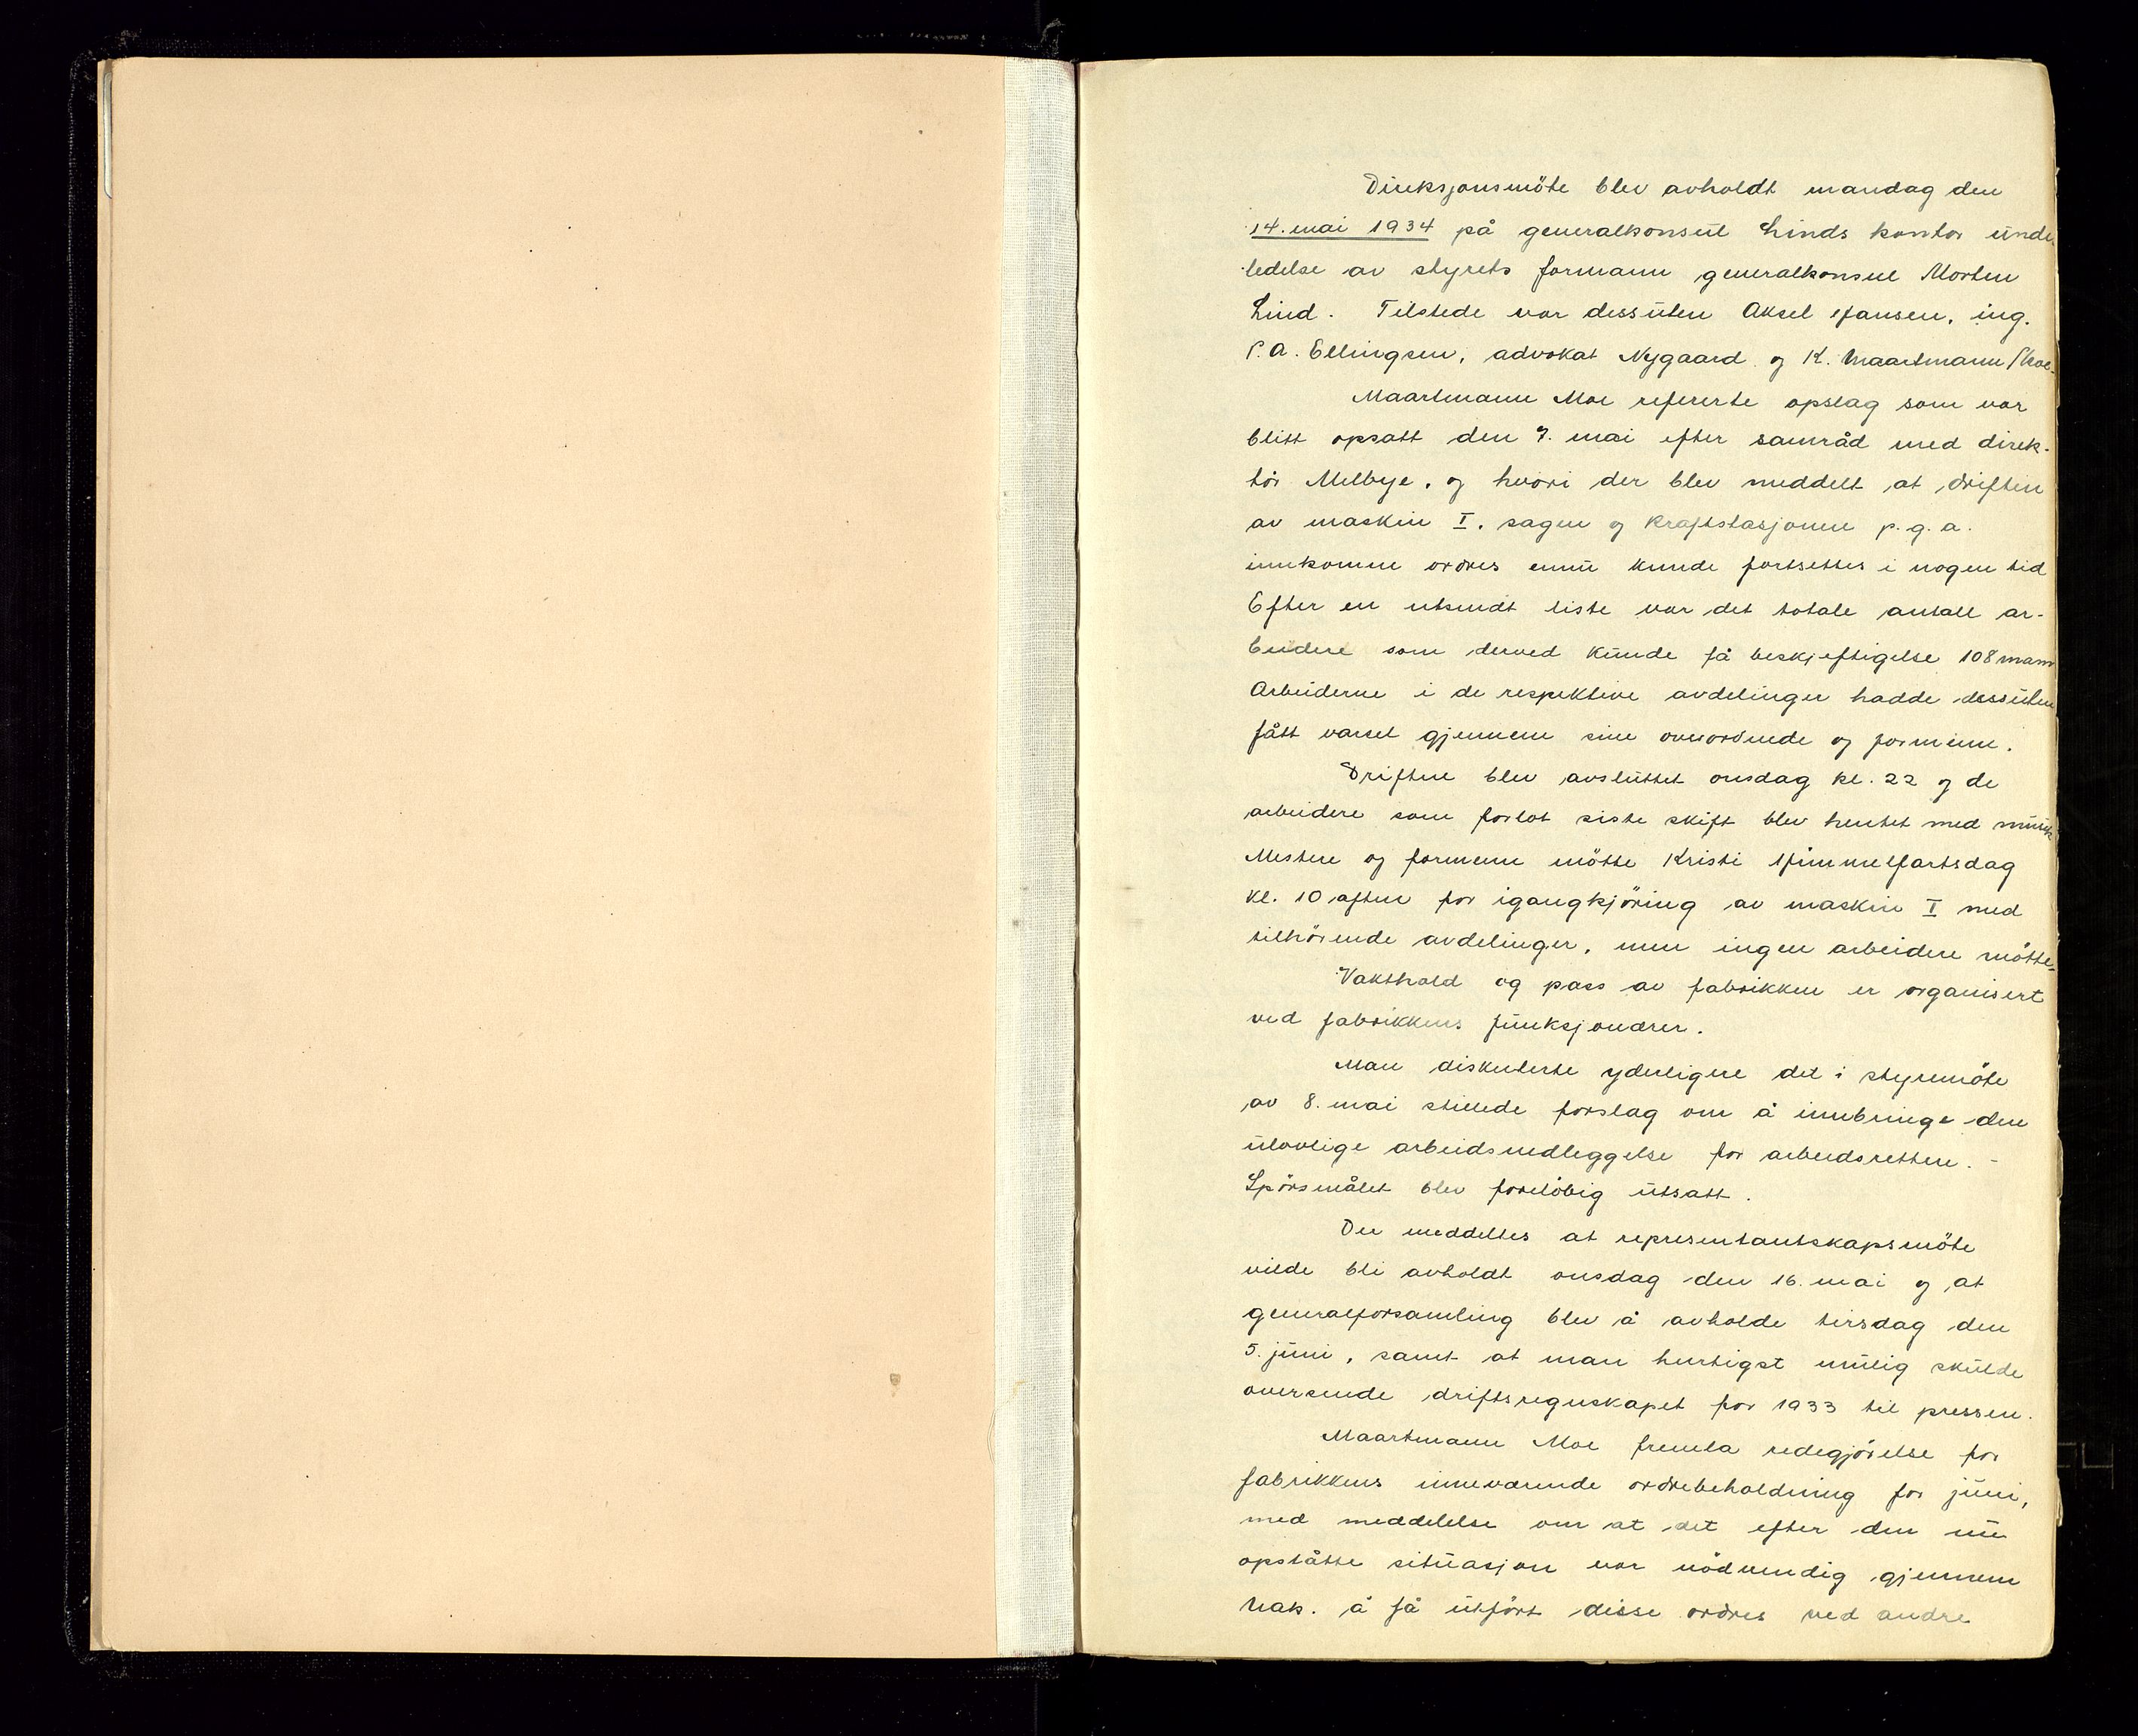 Direksjonsmöte blev avholdt mandag den
14. mai 1934 på generalkonsul Linds kontor under
ledelse av styrets formann generalkonsul Morten
Lind. Tilstede var dessuten Aksel Hansen, ing.
P. A. Ellingsen, advokat Nygaard og K. Maartmann Moe.
Maartmann Moe refererte opslag som var
blitt opsatt den 7. mai efter samråd med direk-
tör Melbye, og hvori der blev meddelt at driften
av maskin I, sagen og kraftstasjonen p.g.a.
innkomne ordres ennu kunde fortsettes i nogen tid
Efter en utsendt liste var det totale antall ar-
beidere som derved kunde få beskjeftigelse 108 mann
Arbeiderne i de respektive avdelinger hadde dessuten
fått varsel gjennem sine overordnede og formenn.
Driften blev avsluttet onsdag kl. 22 og de
arbeidere som forlot siste skift blev hentet med musik
Mestere og formenn mötte Kristi Himmelfartsdag
kl. 10 aften for igangkjöring av maskin I med
tilhörende avdelinger, men ingen arbeidere mötte.
Vakthold og pass av fabrikken er organisert
ved fabrikkens funksjonærer.
Man diskuterte yderligere det i styremöte
av 8. mai stillede forslag om å innbringe den
ulovlige arbeidsnedleggelse for arbeidsretten. -
Spörsmålet blev foreløbig utsatt.
Der meddeltes at representantskapsmöte
vilde bli avholdt onsdag den 16. mai og at
generalforsamling blev å avholde tirsdag den
5. juni, samt at man hurtigst mulig skulde
oversende driftsregnskapet for 1933 til pressen.
Maartmann Moe fremla redegjörelse for
fabrikkens inneværende ordrebeholdning for juni,
med meddelelse om at det efter den nu
opståtte situasjon var nödvendig gjennem
Nak. å få utfört disse ordres ved andre